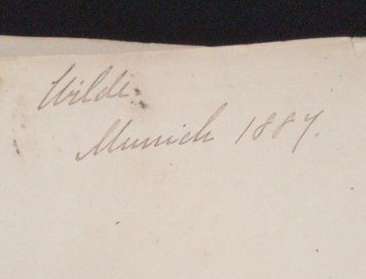 Wilde.
Munich 1887.